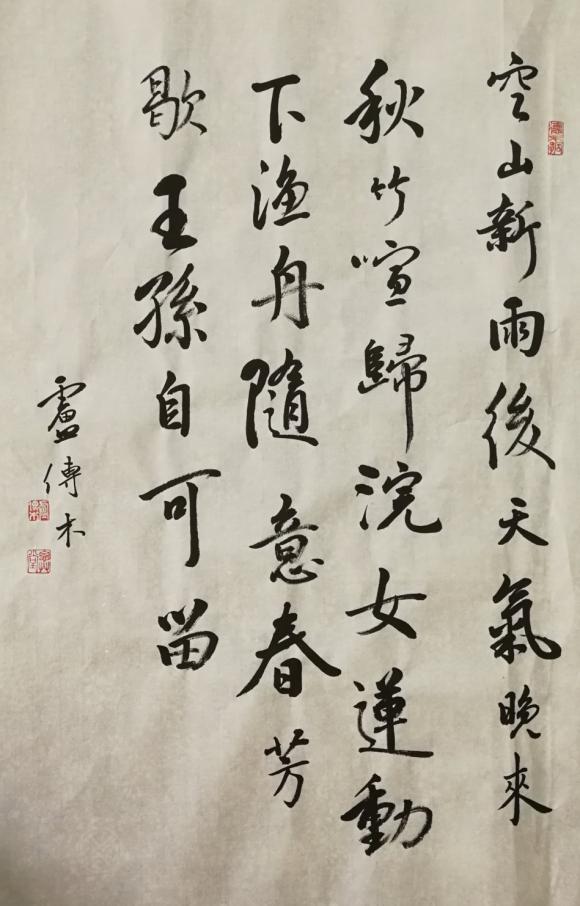 空山新雨後天氣晚來
秋竹喧歸浣女蓮動
下漁舟隨意春芳
歇王孫自可留
盧傳木